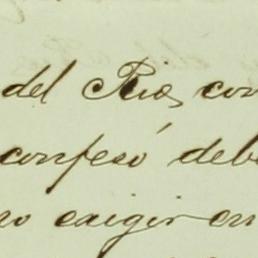 del Rio, con
confesó deb
no exigir en